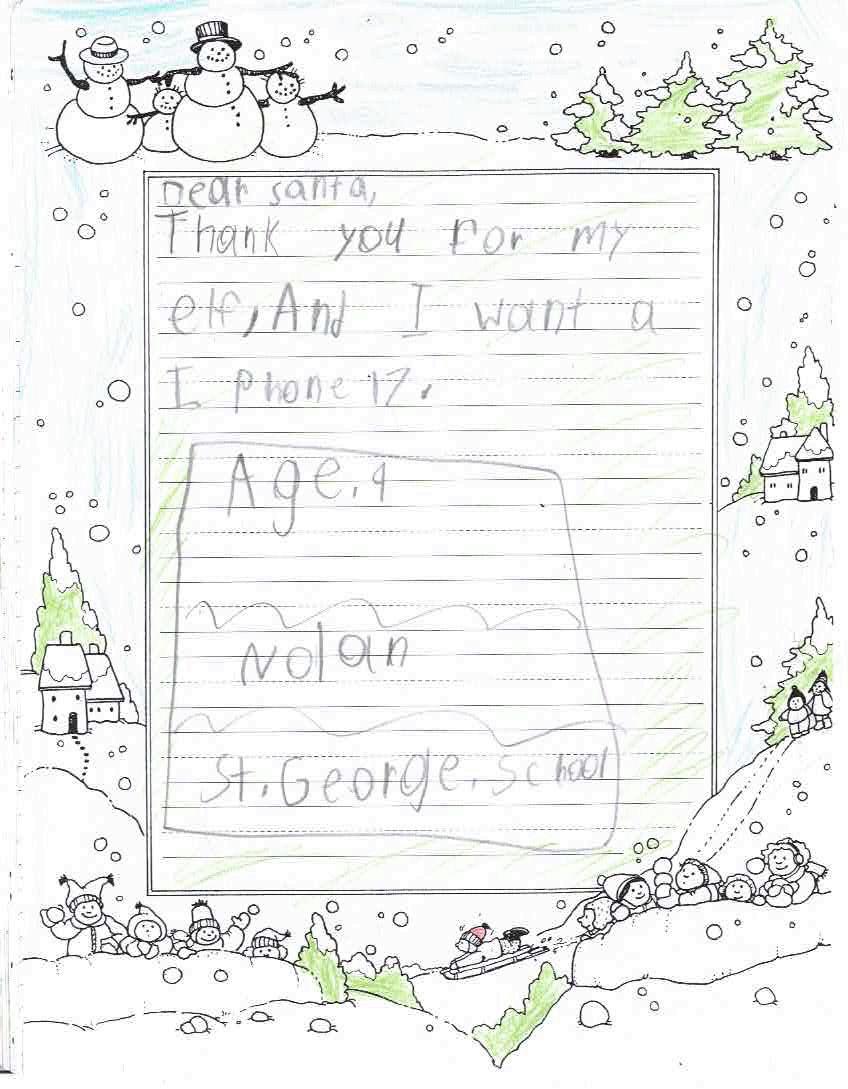 Dear santa,
Thank you For my
elf, And I want a
I phone 17.
Age. 9
Nolan
St. George. school